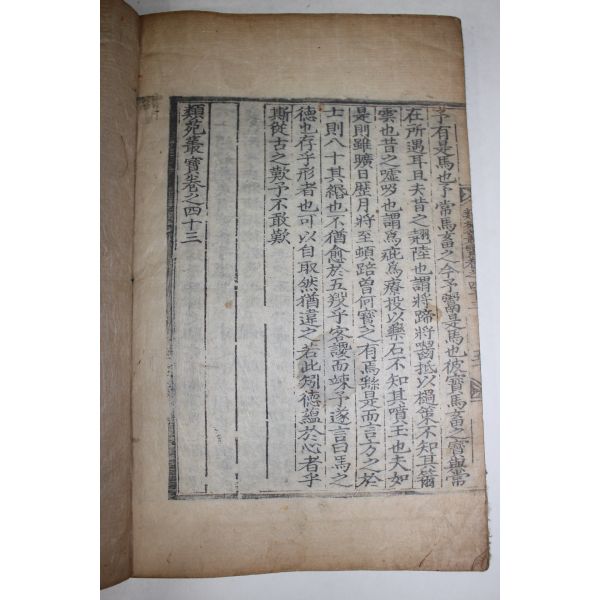 予有是馬也予常馬畜之今予鬻是馬也彼寶馬畜之寶與常
在所遇耳且夫昔之翹陸也謂將蹄將嚙抵以檛策不知其籋
雲也昔之噓吸也謂爲疵爲癘投以藥石不知其噴玉也夫如
是則雖曠日歷月將至頓踣曾何寶之有焉繇是而言方之於
士則八十其緡也不猶愈於五羖乎客謖而竦予遂言曰馬之
德也存乎形者也可以自取然猶違之若此矧德蘊於心者乎
斯從古之歎予不敢歎
類苑叢寶卷之四十三